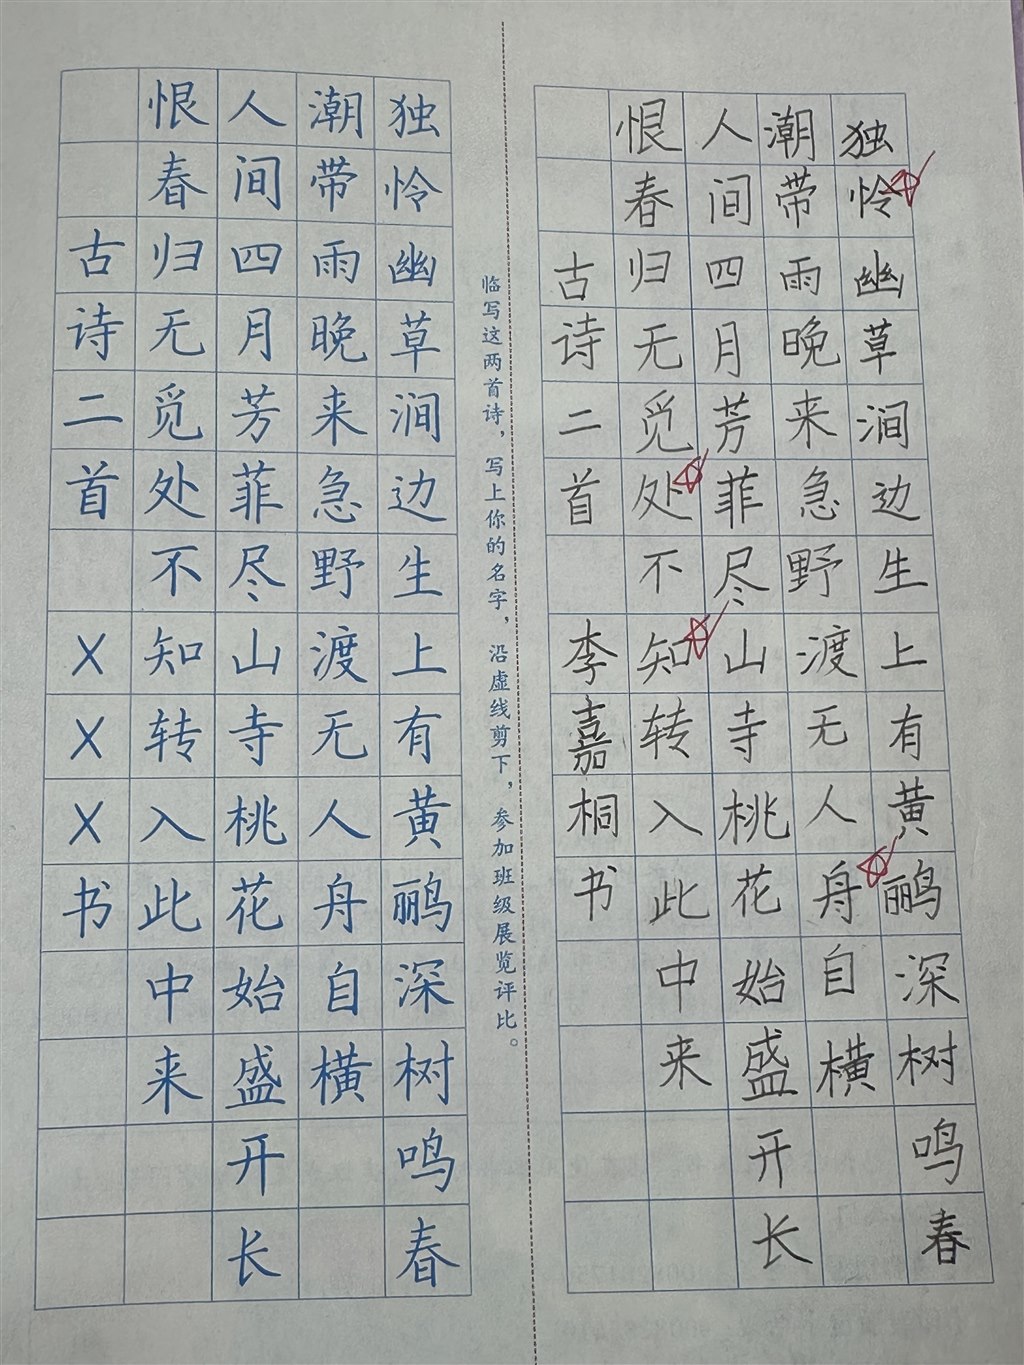 独怜幽草涧边生上有黄鹂深树鸣春
潮带雨晚来急野渡无人舟自横
人间四月芳菲尽山寺桃花始盛开长
恨春归无觅处不知转入此中来
古诗二首 XXX书
临写这两首诗，写上你的名字，沿虚线剪下，参加班级展览评比。
独怜幽草涧边生上有黄鹂深树鸣春
潮带雨晚来急野渡无人舟自横
人间四月芳菲尽山寺桃花始盛开长
恨春归无觅处不知转入此中来
古诗二首 李嘉桐书